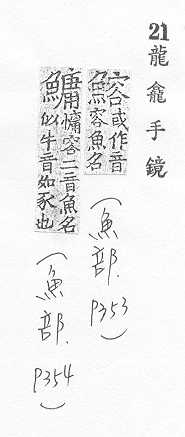 21 龍龕手鏡
鰫或作音
容魚名
(魚部. P353)
鱅慵容二音魚名
似牛音如豕也
(魚部. P354)